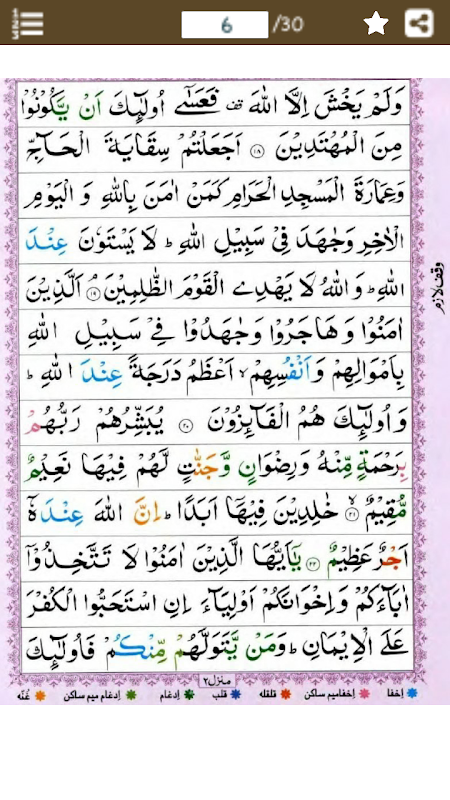 6 /30
وَلَمْ يَخْشَ اِلَّا اللّٰهَ قف فَعَسٰٓى اُولٰٓئِكَ اَنْ يَّكُوْنُوْا
مِنَ الْمُهْتَدِيْنَ ۝۱۸ اَجَعَلْتُمْ سِقَايَةَ الْحَآجِّ
وَعِمَارَةَ الْمَسْجِدِ الْحَرَامِ كَمَنْ اٰمَنَ بِاللّٰهِ وَ الْيَوْمِ
الْاٰخِرِ وَجٰهَدَ فِيْ سَبِيْلِ اللّٰهِ ؕ لَا يَسْتَوٗنَ عِنْدَ
اللّٰهِ ؕ وَاللّٰهُ لَا يَهْدِى الْقَوْمَ الظّٰلِمِيْنَ ۝۱۹ اَلَّذِيْنَ
اٰمَنُوْا وَهَاجَرُوْا وَجٰهَدُوْا فِيْ سَبِيْلِ اللّٰهِ
بِاَمْوَالِهِمْ وَاَنْفُسِهِمْ ۙ اَعْظَمُ دَرَجَةً عِنْدَ اللّٰهِ ؕ
وَاُولٰٓئِكَ هُمُ الْفَآئِزُوْنَ ۝۲۰ يُبَشِّرُهُمْ رَبُّهُمْ
بِرَحْمَةٍ مِّنْهُ وَرِضْوَانٍ وَّجَنّٰتٍ لَّهُمْ فِيْهَا نَعِيْمٌ
مُّقِيْمٌ ۝۲۱ خٰلِدِيْنَ فِيْهَآ اَبَدًا ؕ اِنَّ اللّٰهَ عِنْدَهٗٓ
اَجْرٌ عَظِيْمٌ ۝۲۲ يٰٓاَيُّهَا الَّذِيْنَ اٰمَنُوْا لَا تَتَّخِذُوْٓا
اٰبَآءَكُمْ وَاِخْوَانَكُمْ اَوْلِيَآءَ اِنِ اسْتَحَبُّوا الْكُفْرَ
عَلَى الْاِيْمَانِ ؕ وَمَنْ يَّتَوَلَّهُمْ مِّنْكُمْ فَاُولٰٓئِكَ
وقف لازم
منزل۲
اخفا اخفامیم ساکن قلقله قلب ادغام ادغام میم ساکن غُنّه